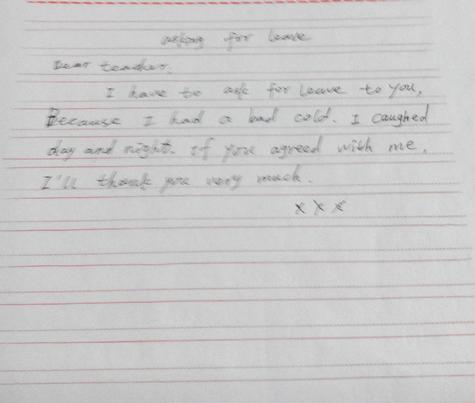 asking for leave
Dear teacher.
I have to ask for leave to you,
Because I had a bad cold. I caughed
day and night. If you agreed with me,
I'll thank you very much.
× × ×